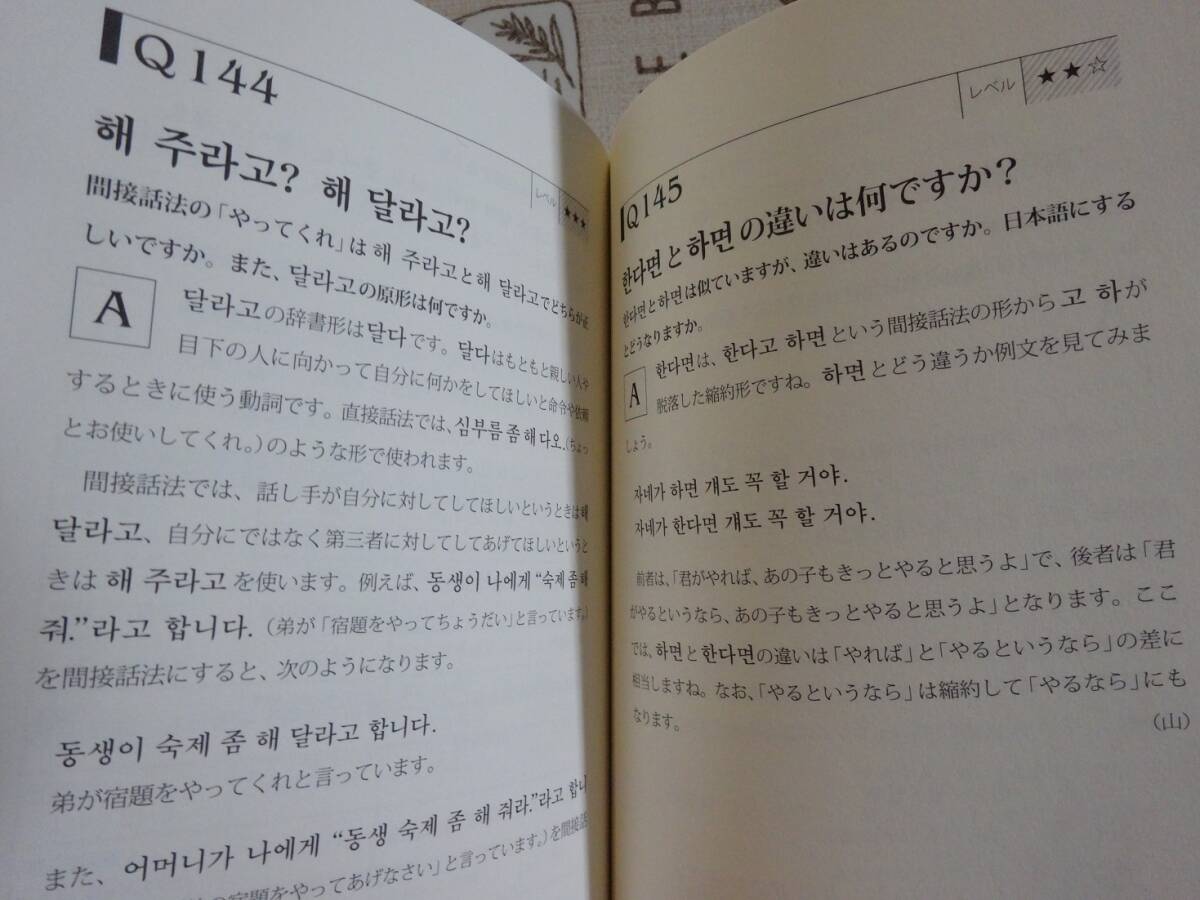 Q144
해 주라고? 해 달라고?
レベル ★★★
間接話法の「やってくれ」は해 주라고と해 달라고でどちらが正
しいですか。また、달라고の原形は何ですか。
A
달라고の辞書形は달다です。달다はもともと親しい人や
目下の人に向かって自分に何かをしてほしいと命令や依頼
するときに使う動詞です。直接話法では、심부름 좀 해 다오.(ちょっ
とお使いしてくれ。)のような形で使われます。
間接話法では、話し手が自分に対してしてほしいというときは해
달라고、自分にではなく第三者に対してしてあげてほしいというと
きは 해 주라고を使います。例えば、동생이 나에게 “숙제 좀 해
줘.”라고 합니다.(弟が「宿題をやってちょうだい」と言っています。)
を間接話法にすると、次のようになります。
동생이 숙제 좀 해 달라고 합니다.
弟が宿題をやってくれと言っています。
また、어머니가 나에게 “동생 숙제 좀 해 줘라.”라고 합니
の宿題をやってあげなさい」と言っています。)を間接話
レベル ★★☆
Q145
한다면と하면の違いは何ですか？
한다면と하면は似ていますが、違いはあるのですか。日本語にする
とどうなりますか。
A
한다면は、한다고 하면という間接話法の形から고 하が
脱落した縮約形ですね。하면とどう違うか例文を見てみま
しょう。
자네가 하면 걔도 꼭 할 거야.
자네가 한다면 걔도 꼭 할 거야.
前者は、「君がやれば、あの子もきっとやると思うよ」で、後者は「君
がやるというなら、あの子もきっとやると思うよ」となります。ここ
では、하면と한다면の違いは「やれば」と「やるというなら」の差に
相当しますね。なお、「やるというなら」は縮約して「やるなら」にも
なります。 (山)